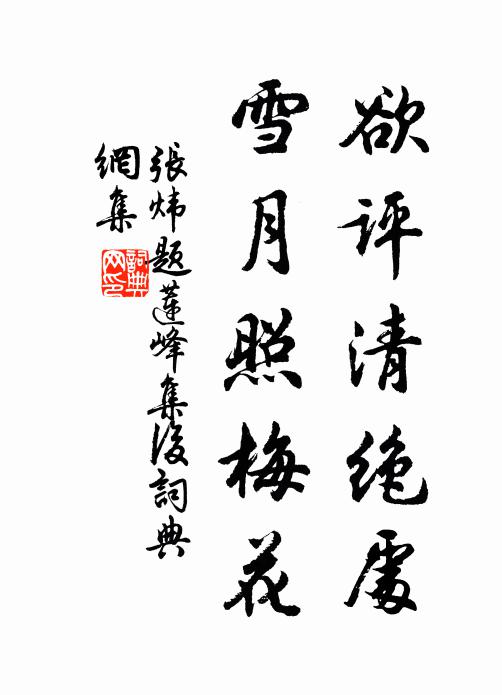 欲評清絶處
雪月照梅花
張煒題蓮峰集後詞典
網集
詞典
网印